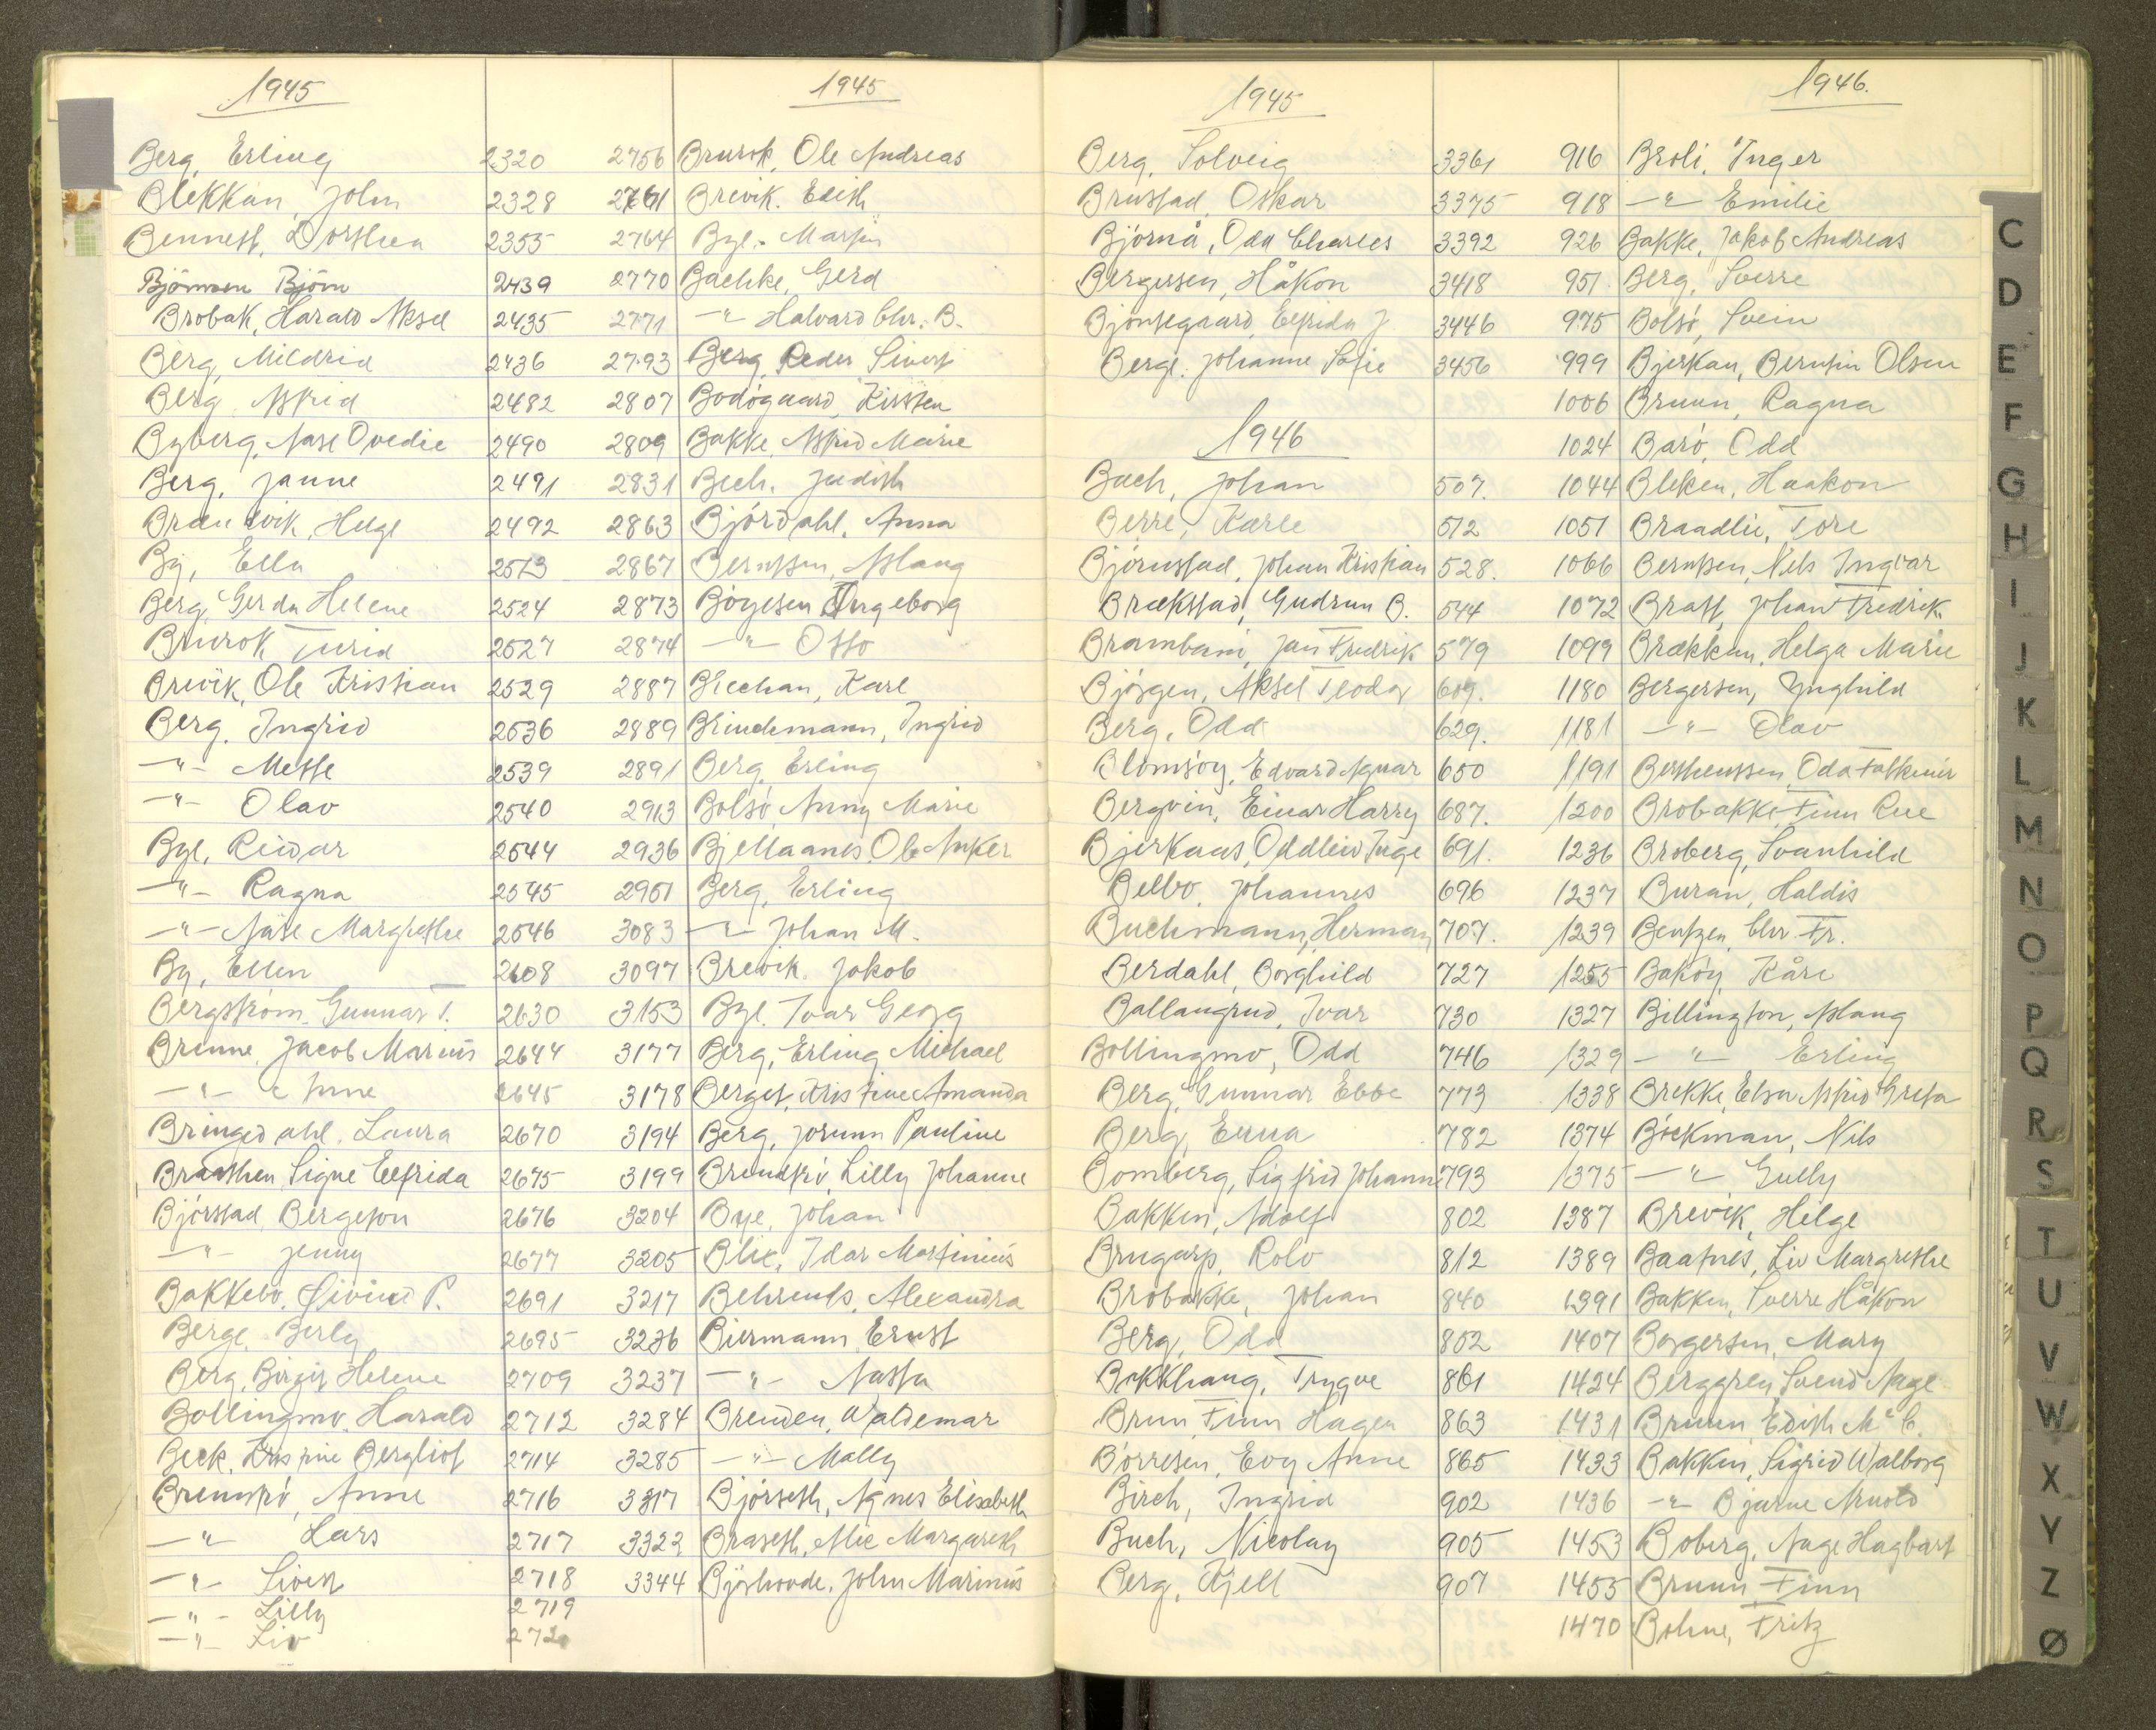 1945
Berg, Erling 2320
Blekkan, John 2328
Bennett, Dorthea 2355
Björnsen Björn 2439
Brobak, Harald Aksel 2435
Berg, Mildrid 2436
Berg, Astrid 2482
Byberg, Aase Ovedie 2490
Berg, Janne 2491
Brandvik, Helge 2492
By, Ella 2513
Berg, Gerda Helene 2524
Brurok Turid 2527
Brevik, Ole Kristian 2529
Berg, Ingrid 2536
—"— Mette 2539
—"— Olav 2540
Bye, Reidar 2544
—"— Ragna 2545
—"— Aase Margrethe 2546
By, Ellen 2608
Bergstrøm, Gunnar T. 2630
Brenne, Jacob Marius 2644
—"— Anne 2645
Bringedahl, Laura 2670
Braathen, Signe Elfrida 2675
Bjørstad, Bergeton 2676
—"— Jenny 2677
Bakkebø, Eivind P. 2691
Berge, Berly 2695
Berg, Birgit Helene 2709
Bollingmo, Harald 2712
Beck, Kristine Bergliot 2714
Bremsø, Anne 2716
—"— Lars 2717
—"— Sivert 2718
—"— Lilly 2719
—"— Liv 272
1945
2756 Brurok, Ole Andreas
2761 Brevik, Edith
2764 Bye, Martin
2770 Bachke, Gerd
2771 —"— Halvard Chr. B.
2793 Berg, Peder Sivert
2807 Bodøgaard, Kirsten
2809 Bakke, Astrid Marie
2831 Bech, Judith
2863 Bjørdahl, Anna
2867 Berntsen, Aslaug
2873 Bøgesen Ingeborg
2874 —"— Otto
2887 Blechan, Karl
2889 Blindemann, Ingrid
2891 Berg, Erling
2913 Bolsø, Anny Marie
2936 Bjellaanes Ole Anker
2951 Berg, Erling
3083 —"— Johan M.
3097 Brevik, Jakob
3153 Bye, Ivar Georg
3177 Berg, Erling Michael
3178 Berget, Kristine Amanda
3194 Berg, Jorunn Pauline
3199 Brendsø, Lilly Johanne
3204 Bye, Johan
3205 Blix, Idar Martinius
3217 Behrents, Alexandra
3236 Biermann Ernst
3237 —"— Nasta
3284 Brenden, Waldemar
3285 —"— Molly
3317 Bjørseth, Agnes Elisabeth
3322 Braseth, Alie Margareth
3344 Bjørhovde, John Marinus
1945
Berg, Solveig 3361
Brustad, Oskar 3375
Bjørnå, Odd Charles 3392
Bergersen, Håkon 3418
Bjøntegaard, Elfrida J. 3446
Berge, Johanne Sofie 3456
1946
Bach, Johan 507.
Berre, Karle 512
Bjørnstad, Johan Kristian 528.
Brækstad, Gudrun B. 544
Brambani, Jan Fredrik 579
Bjørgen, Aksel Teodor 609.
Berg, Odd 629.
Blomsøy, Edvard Agnar 650
Bergvin, Einar Harry 687.
Bjerkaas, Oddleiv Inge 691.
Belbo, Johannes 696
Buchmann, Herman 707.
Berdahl, Borghild 727
Ballangrud, Ivar 730
Bollingmo, Odd 746
Berg, Gunnar Ebbe 773
Berg, Erna 782
Bomberg, Sigfrid Johann 793
Bakken, Adolf 802
Brugarp, Rolv 812
Brobakke, Johan 840
Berg, Odd 852
Bakkhaug, Trygve 861
Brun, Finn Hagen 863
Børresen, Evy Anne 865
Birch, Ingrid 902
Buch, Nicolay 905
Berg, Kjell 907
1946.
916 Broli, Inger
918 —"— Emilie
926 Bakke, Jakob Andreas
951. Berg, Sverre
975 Bolsø, Svein
999 Bjerkan, Berntin Olsen
1006 Bruun, Ragna
1024 Barø, Odd
1044 Bleken, Haakon
1051 Braadlie, Tore
1066 Berntsen, Nils Ingvar
1072 Bratt, Johan Fredrik
1099 Brækkan, Helga Marie
1180 Bergersen, Ynghild
1181 —"— Olav
1191 Berthenssen, Oda Falkmir
1200 Brobakke, Finn Rue
1236 Broberg, Svanhild
1237 Buran, Haldis
1239 Bentzen, Chr Fr.
1255 Bakøy, Kåre
1327 Billington, Aslaug
1329 —"— Erling
1338 Brekke, Elsa Astrid Greta
1374 Bøckman, Nils
1375 —"— Gully
1387 Brevik, Helge
1389 Baatnes, Liv Margrethe
1391 Bakken, Sverre Håkon
1407 Borgersen, Mary
1424 Berggren, Svend Aage
1431 Bruun, Edith Mc C.
1433 Bakken, Sigrid Walborg
1436 —"— Bjarne Arnold
1453 Boberg, Aage Hagbart
1455 Bruun Finn
1470 Bohne, Fritz
C
D
E
F
G
H
I
J
K
L
M
N
O
P
Q
R
S
T
U
V
W
X
Y
Z
Ø